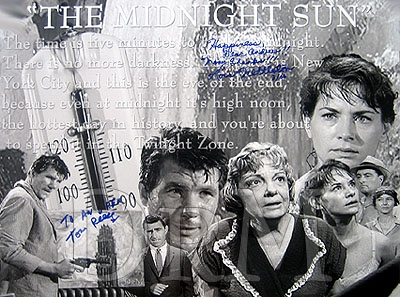 "THE MIDNIGHT SUN"
The time is five minutes to midnight.
There is no more darkness. is New
York City and this is the eve of the end,
because even at midnight it's high noon,
the hottest day in history, and you're about
to spend it in the Twilight Zone.
Happiness,
120
110
100
TO AN
Tom Reese